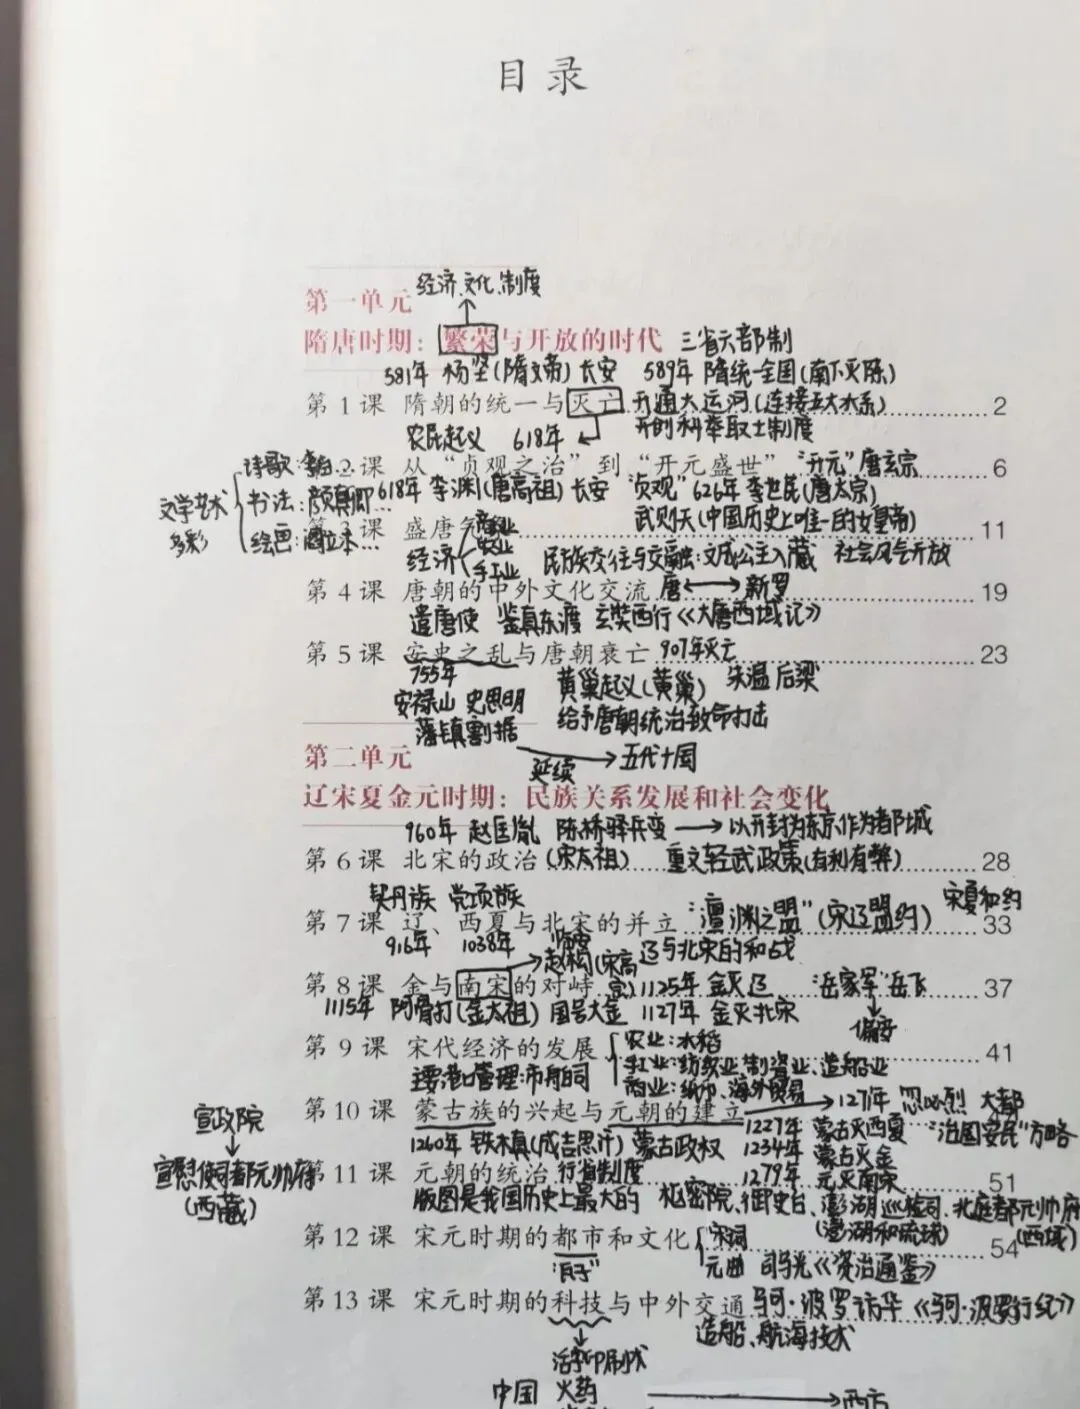 目录
经济、文化、制度
第一单元
隋唐时期：繁荣与开放的时代 三省六部制
581年 杨坚(隋文帝) 长安 589年 隋统一全国(南下灭陈)
第1课 隋朝的统一与灭亡 开通大运河(连接五大水系) 2
农民起义 618年 开创科举取士制度
诗歌：李白… 2课 从“贞观之治”到“开元盛世” “开元”唐玄宗 6
文学艺术多彩 书法：颜真卿… 618年 李渊(唐高祖) 长安 “贞观” 626年 李世民(唐太宗)
武则天(中国历史上唯一的女皇帝)
绘画：阎立本… 第3课 盛唐气 11
经济 商业 农业 手工业 民族交往与交融：文成公主入藏 社会风气开放
第4课 唐朝的中外文化交流 唐 新罗 19
遣唐使 鉴真东渡 玄奘西行《大唐西域记》
第5课 安史之乱与唐朝衰亡 907年灭亡 23
755年
安禄山 史思明 黄巢起义(黄巢) 朱温 后梁
藩镇割据 给予唐朝统治致命打击
延续 五代十国
第二单元
辽宋夏金元时期：民族关系发展和社会变化
960年 赵匡胤 陈桥驿兵变 以开封为东京作为都城
第6课 北宋的政治 (宋太祖) 重文轻武政策(有利有弊) 28
契丹族 党项族 宋夏和约
第7课 辽、西夏与北宋的并立 “澶渊之盟”(宋辽盟约) 33
916年 1038年 辽与北宋的和战
赵构(宋高宗)
第8课 金与南宋的对峙 1125年 金灭辽 “岳家军”岳飞 37
1115年 阿骨打(金太祖) 国号大金 1127年 金灭北宋
偏安
第9课 宋代经济的发展 农业：水稻 41
主要港口管理：市舶司 手工业：纺织业、制瓷业、造船业
商业：纸币、海外贸易
第10课 蒙古族的兴起与元朝的建立 1271年 忽必烈 大都
1260年 铁木真(成吉思汗) 蒙古政权 1227年 蒙古灭西夏 “治国安民”方略
1234年 蒙古灭金
宣政院
宣慰使司都元帅府(西藏)
第11课 元朝的统治 行省制度 1279年 元灭南宋 51
版图是我国历史上最大的 枢密院、御史台、澎湖巡检司、北庭都元帅府
(澎湖和琉球) (西域)
第12课 宋元时期的都市和文化 宋词 54
“瓦子” 元曲 司马光《资治通鉴》
第13课 宋元时期的科技与中外交通 马可·波罗访华《马可·波罗行纪》
造船、航海技术
活字印刷术
中国 火药 西方